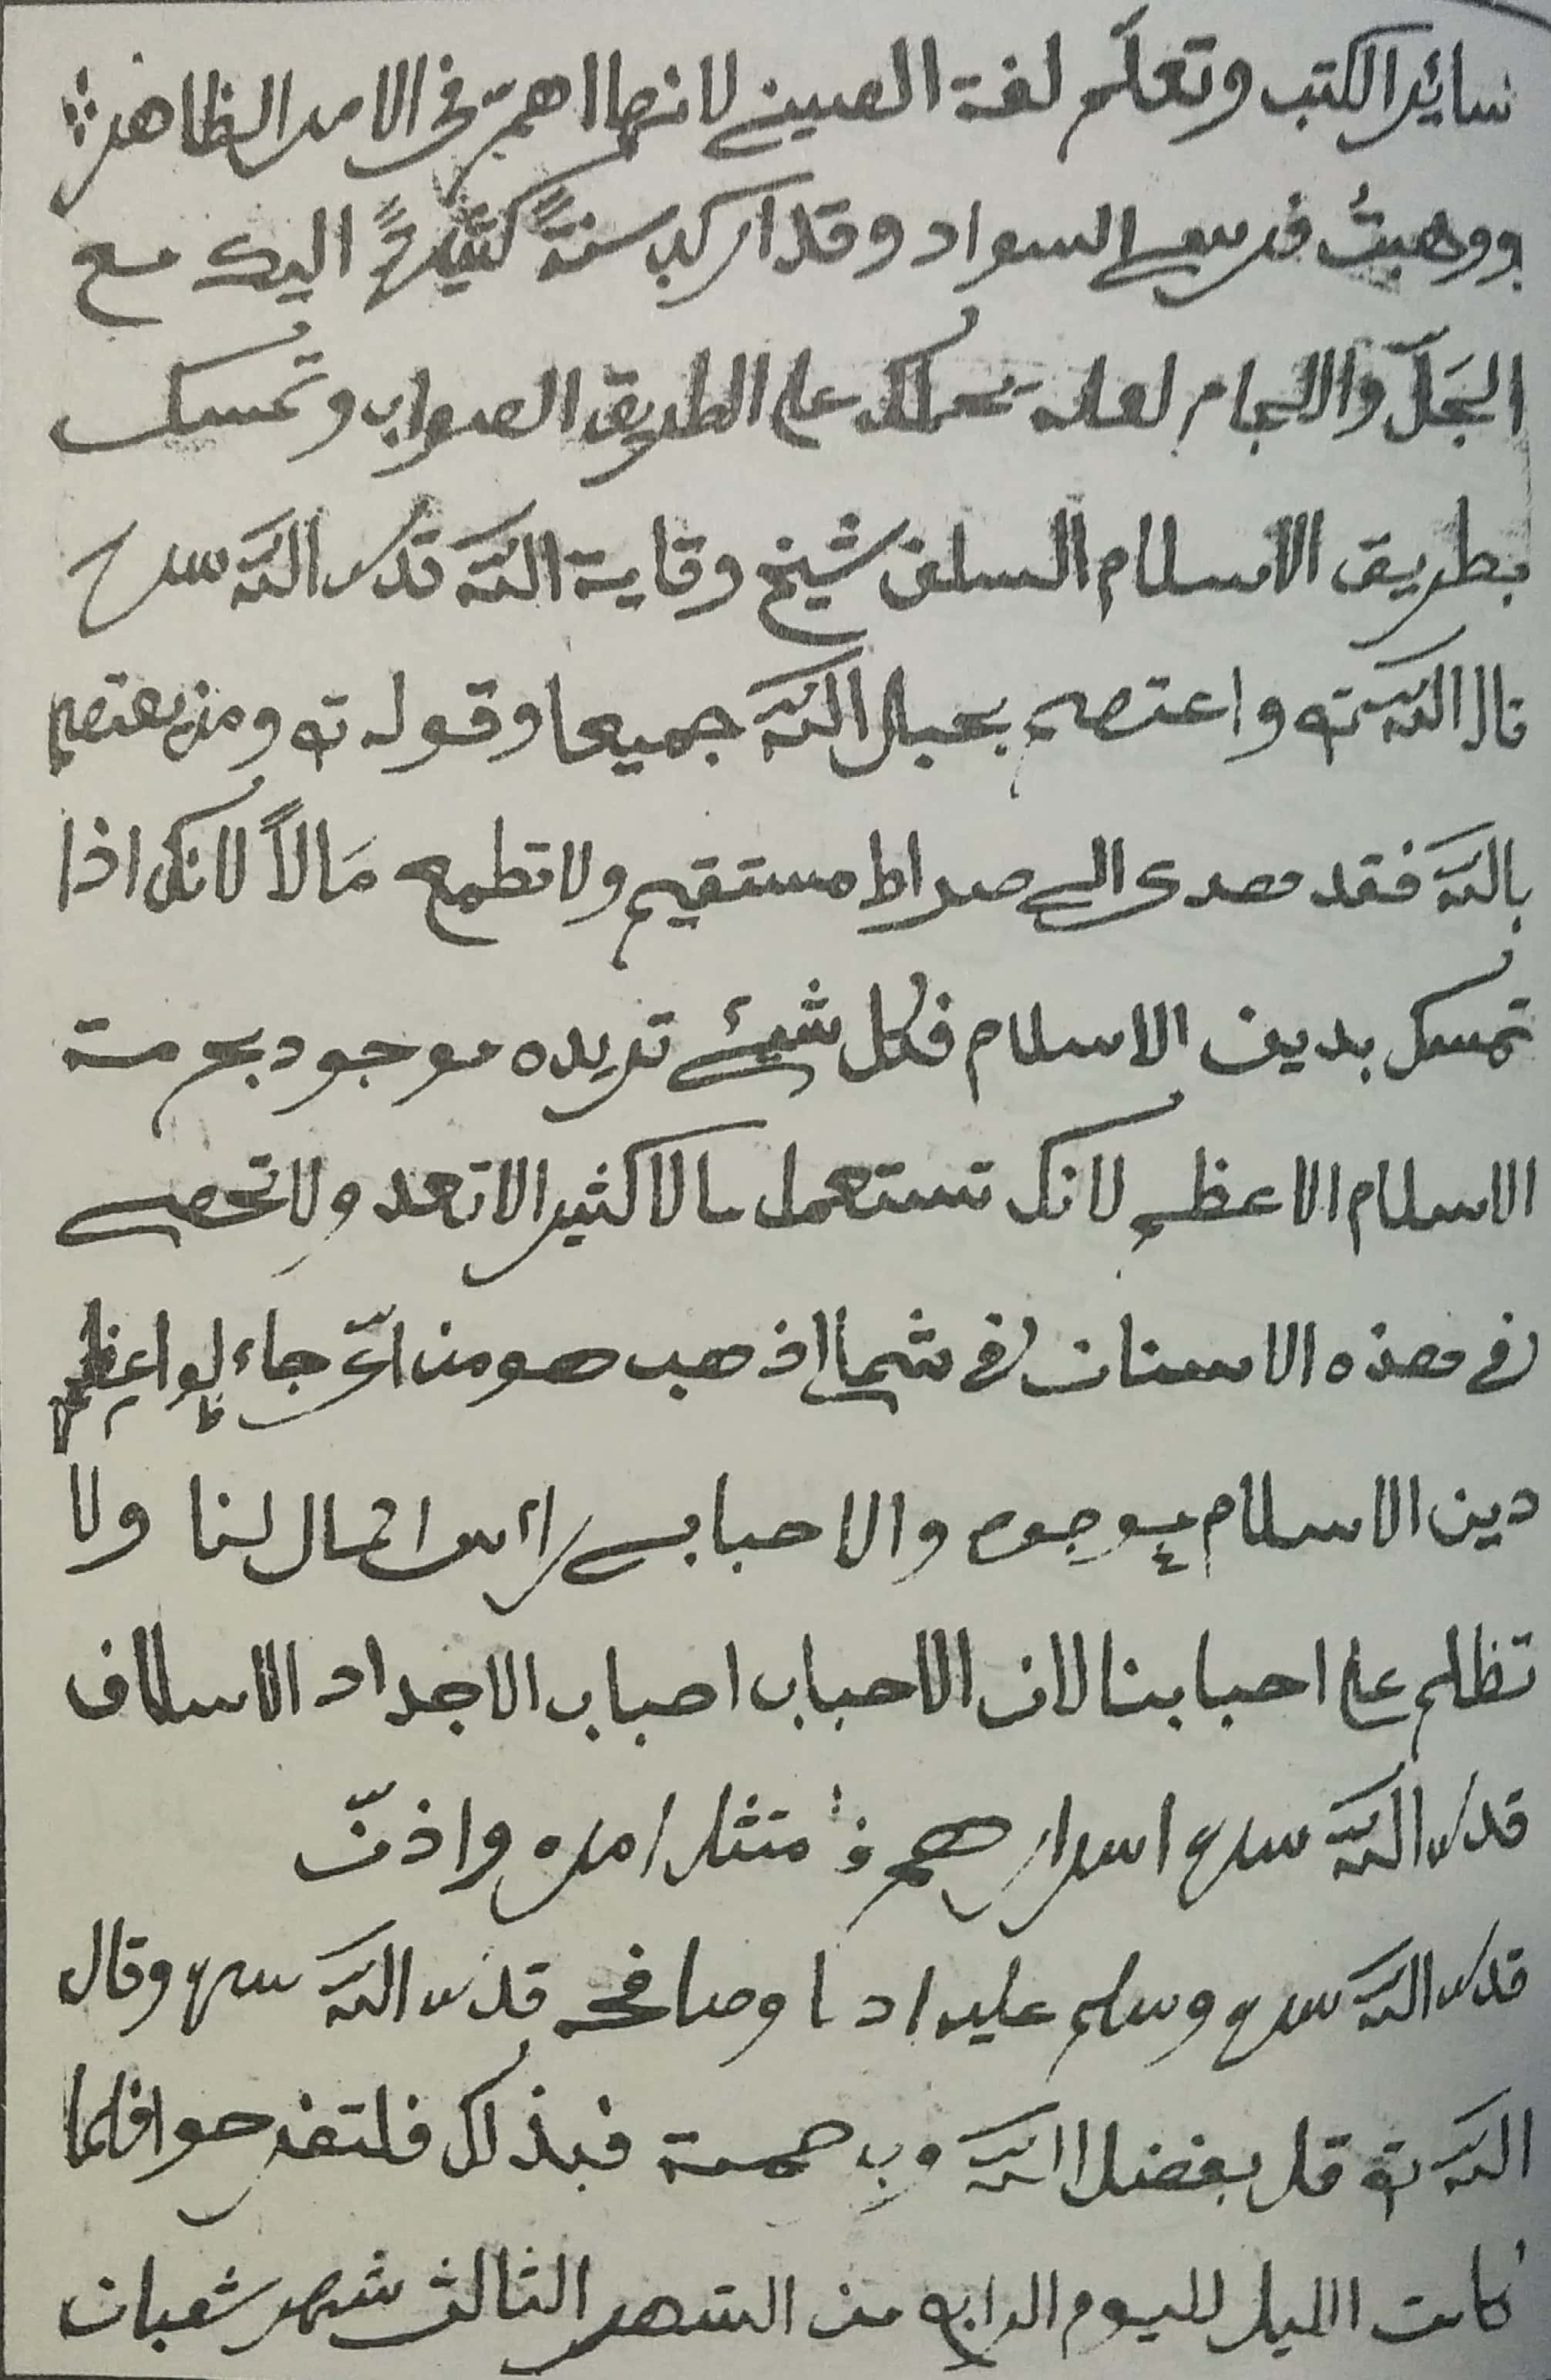 سائر الكتب وتعلّم لغة الصين لانهما اهمّ في الامر الظاهر
ووهبتُ فرسى السواد وقد اركب سنةً كثيرةً اليك مع
الجَلّ والالجام لعله يحملك على الطريق الصواب وتمسك
بطريق الاسلام السلف شيخ وقاية الله قدس الله سره
قال الله تع واعتصم بحبل الله جميعا وقوله تع ومن يعتصم
بالله فقد هدى الى صراط مستقيم ولا تطمع مَالاً لانك اذا
تمسك بدين الاسلام فكل شيئ تريده موجود بحرمة
الاسلام الاعظم لانك تستعمل مالا كثيرا لا تعد ولا تحصى
في هذه الاسنان في شمال اذهب هو من اىّ جاء لو اعظم
دين الاسلام موجود والاحبابى رأس المال لنا ولا
تظلم على احبابنا لان الاحباب احباب الاجداد الاسلاف
قدس الله سره اسرارهم فامتثل امره واذنّ
قدس الله سره وسلم عليه ادبا وصافحه قدس الله سره وقال
الله تع قل بفضل الله وبرحمته فبذلك فلتفرحوا فلما
كانت الليل لليوم الرابع من الشهر الثالث شهر شعبان